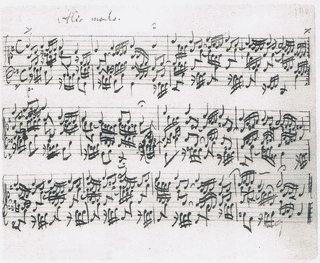 Alio modo.